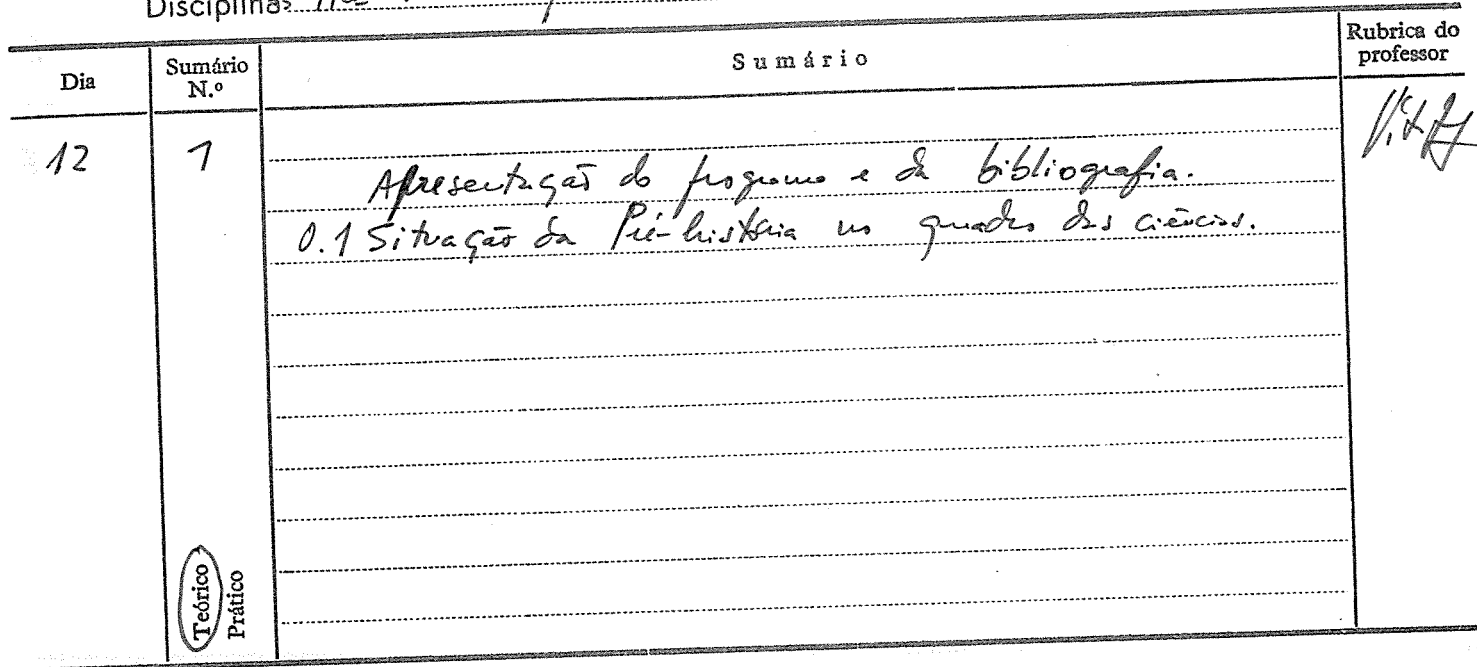 Disciplina:
Dia
Sumário N.º
Sumário
Rubrica do professor
12
1
Apresentação do programa e da bibliografia.
0.1 Situação da Pré-história no quadro das ciências.
Teórico
Prático